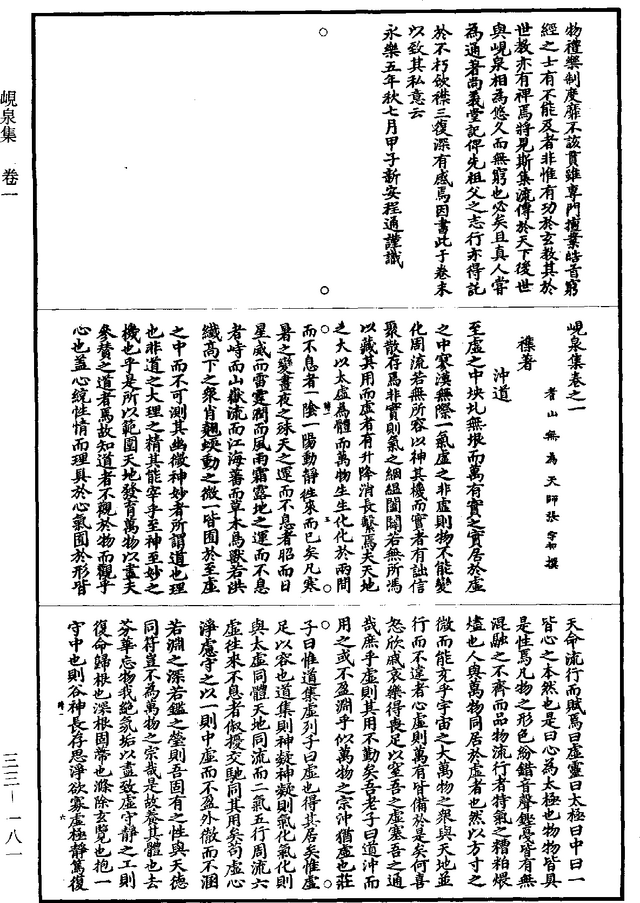 物禮樂制度靡不該貫雖專門擅業皓首窮
經之士有不能及者非惟有功於玄教其於
世教亦有裨焉將見斯集流傳於天下後世
與峴泉相為悠久而無窮也必矣且真人嘗
為通著尚義堂記俾先祖父之志行亦得託
於不朽欲襟三復深有感焉因書此于卷末
以致其私意云
永樂五年秋七月甲子新安程通謹識
峴泉集卷之一
耆山無為天師張宇初撰
襍著
沖道
至虛之中坱圠無垠而萬有實之實居於虛
之中寥漠無際一氣虛之非虛則物不能變
化周流若無所容以神其機而實者有詘信
聚散存焉非實則氣之絪縕闔闢若無所馮
以藏其用而虛者有升降消長繫焉夫天地
之大以太虛為體而萬物生生化化於兩間
而不息者一陰一陽動靜往來而已矣凡寒
暑之變晝夜之殊天之運而不息者昭而日
星威而雷霆潤而風雨霜露地之運而不息
者峙而山嶽流而江海蕃而草木鳥獸若洪
纖高下之衆肖翹蝡動之微一皆囿於至虛
之中而不可測其幽微神妙者所謂道也理
也非道之大理之精其能宰乎至神至妙之
機也乎是所以範圍天地發育萬物以盡夫
參贊之道者焉故知道者不觀於物而觀乎
心也蓋心統性情而理具於心氣囿於形皆
天命流行而賦焉曰虛靈曰太極曰中曰一
皆心之本然也是曰心為太極也物物皆具
是性焉凡物之形色紛錯音聲鏗戛皆有無
混融之不齊而品物流行者特氣之糟粕煨
燼也人與萬物同居於虛者也然以方寸之
微而能充乎宇宙之大萬物之衆與天地並
行而不違者心虛則萬有皆備於是矣何喜
怒欣戚哀樂得喪足以窒吾之虛塞吾之通
哉庶乎虛則其用不勤矣吾老子曰道沖而
用之或不盈淵乎似萬物之宗沖猶虛也莊
子曰惟道集虛列子曰虛也得其居矣惟虛
足以容也道集則神凝神凝則氣化氣化則
與太虛同體天地同流而二氣五行周流六
虛往來不息者俶擾交馳同其用矣苟虛心
淨慮守之以一則中虛而不盈外徹而不溷
若淵之深若鑑之瑩則吾固有之性與天德
同符豈不為萬物之宗哉是故養其體也去
芬華忘物我絕氛垢以益致虛守靜之工則
復命歸根也深根固蔕也滌除玄覽也抱一
守中也則谷神長存思淨欲寡虛極靜篤復
峴泉集 卷一
三三—一八一